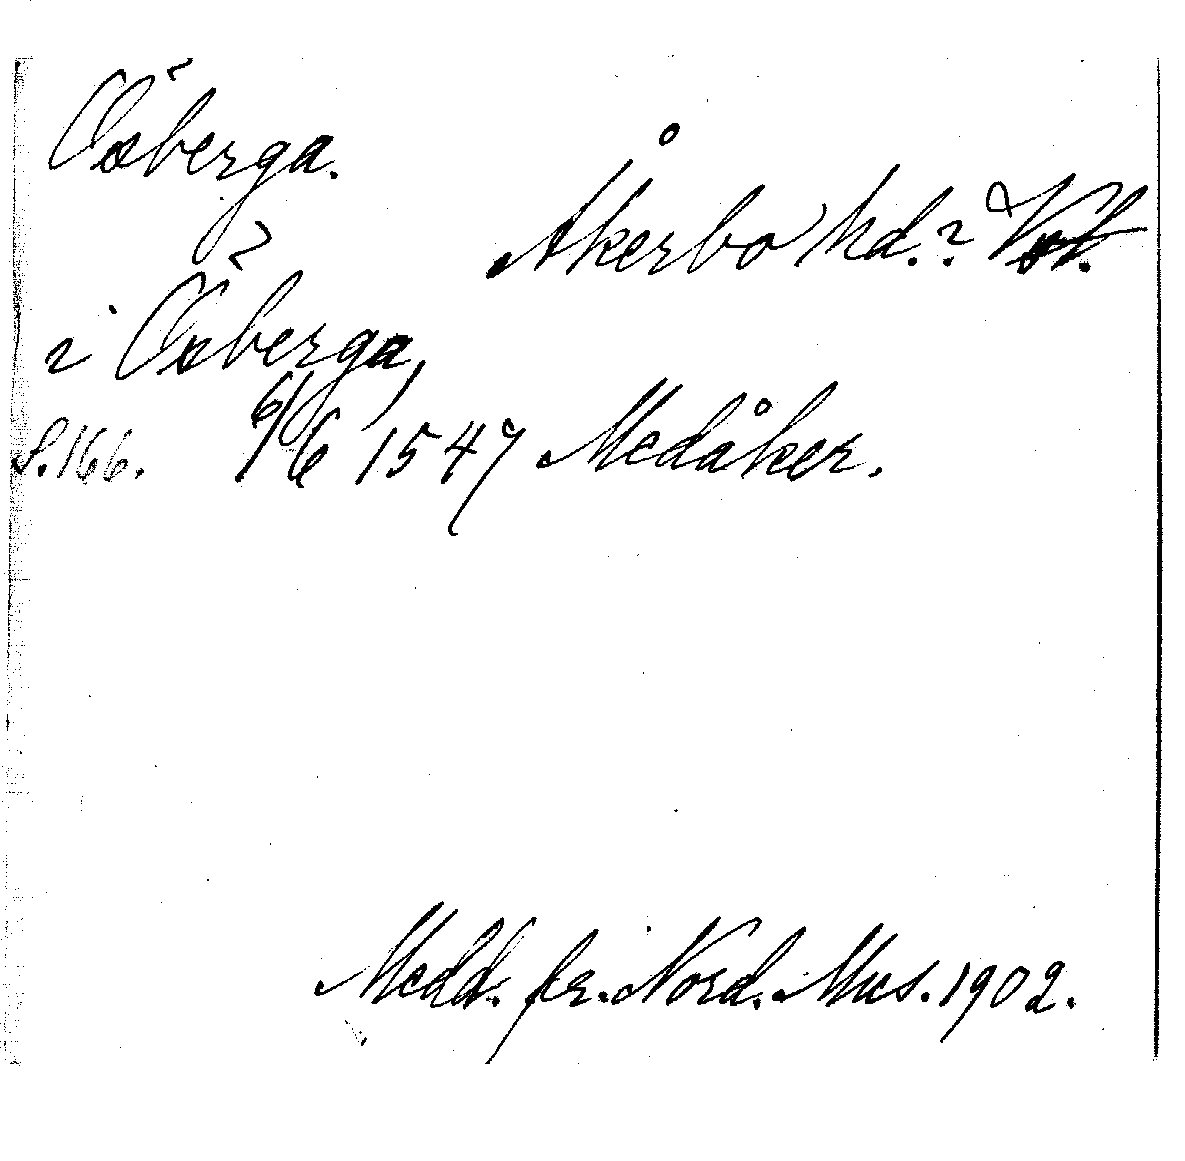 Öxberga.
Åkerbo hd.? Vstl.
i Öxberga,
S. 166. 6/6 1547 Medåker.
Medd. fr. Nord. Mus. 1902.